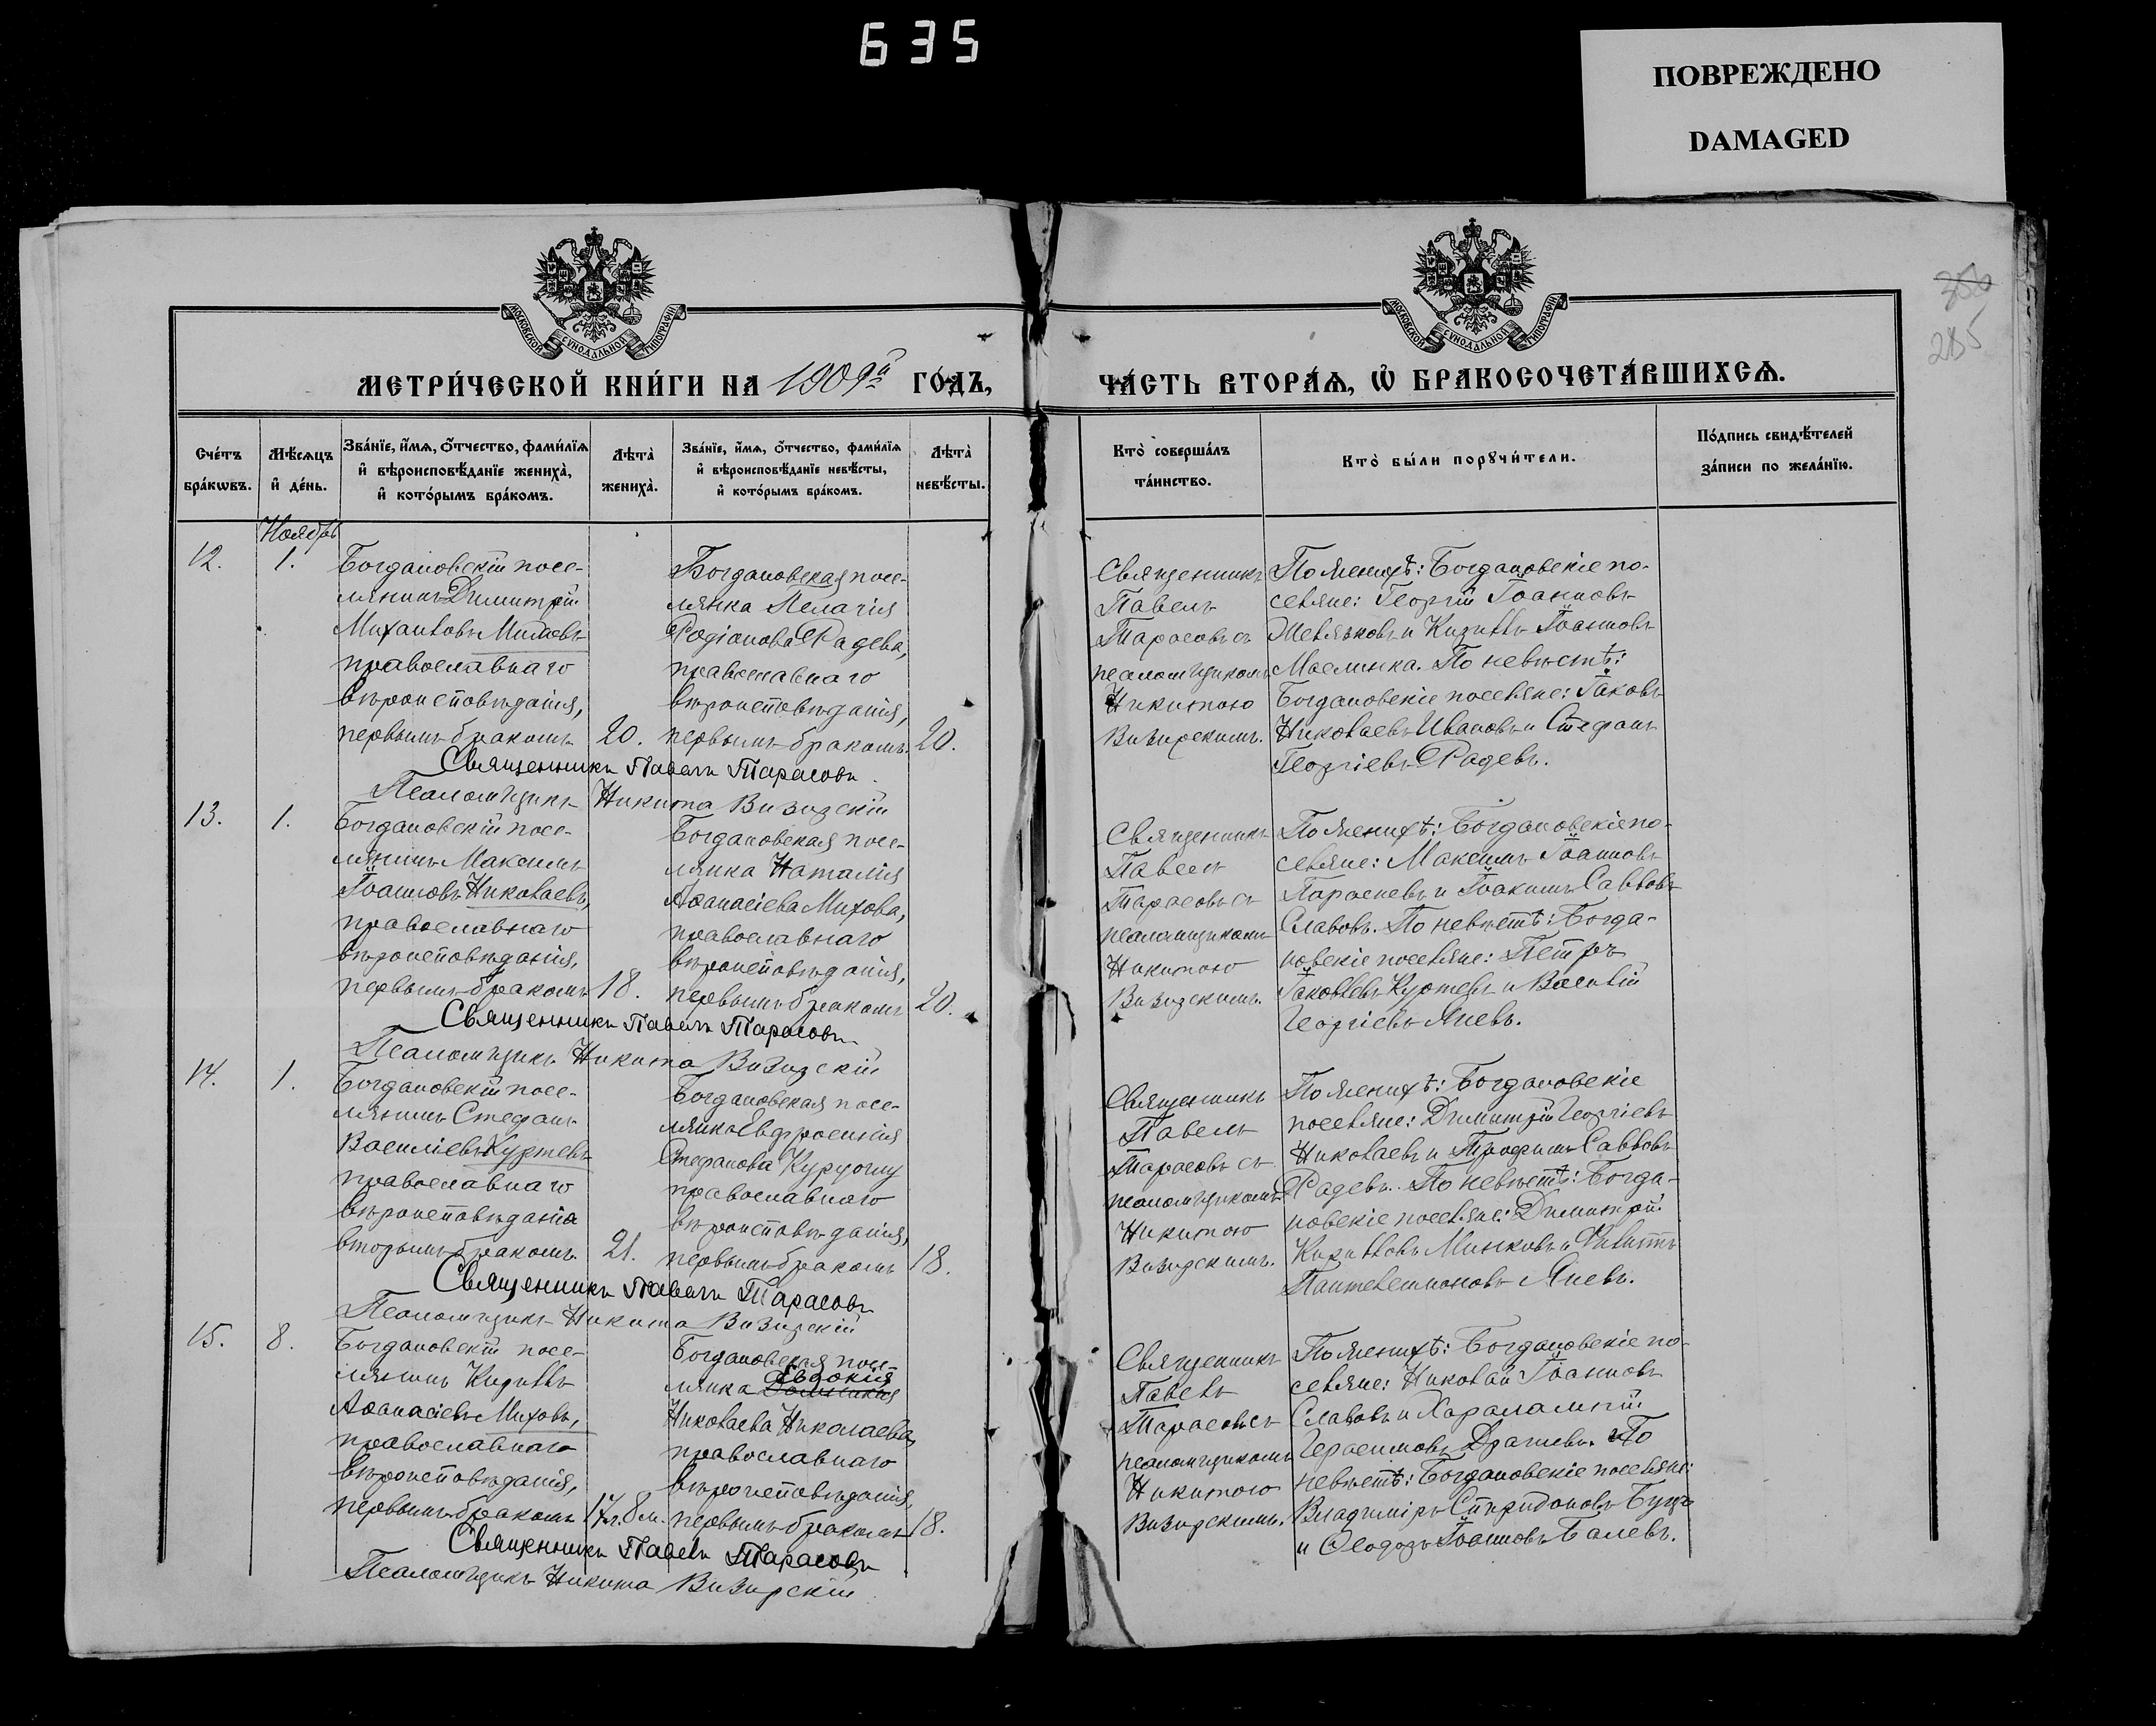 635
ПОВРЕЖДЕНО
DAMAGED
285
МОСКОВСКОЙ СѴНОДАЛЬНОЙ ТИПОГРАФІИ
МОСКОВСКОЙ СѴНОДАЛЬНОЙ ТИПОГРАФІИ
МЕТРИ́ЧЕСКОЙ КНИ́ГИ НА 1909й ГО́ДЪ,
ЧА́СТЬ ВТОРА́Ѧ, Ѡ҆ БРАКОСОЧЕТА́ВШИХСѦ.
Сче́тъ
бра́кѡвъ.
Мѣ́сяцъ
и҆ де́нь.
Зва́нїе, и҆́мѧ, ѻ҆́тчество, фами́лїѧ
и҆ вѣроисповѣ́данїе жениха̀,
и҆ кото́рымъ бра́комъ.
Лѣта̀
жениха̀.
Зва́нїе, и҆́мѧ, ѻ҆́тчество, фами́лїѧ
и҆ вѣроисповѣ́данїе невѣ́сты,
и҆ кото́рымъ бра́комъ.
Лѣта̀
невѣ́сты.
Кто̀ соверша́лъ
та́инство.
Кто̀ бы́ли порꙋчи́тели.
По́дпись свидѣ́телей
за́писи по жела́нїю.
Ноябрь
12.
1.
Богдановскій посе-
лянинъ Димитрій
Михаиловъ
православнаго
вѣроисповѣданія,
первымъ бракомъ
20.
Богдановская посе-
лянка Пелагія
Родіонова Радева,
православнаго
вѣроисповѣданія,
первымъ бракомъ.
20.
Священникъ
Павелъ
Тарасовъ съ
псаломщикомъ
Никитою
Визирскимъ.
По женихѣ: Богдановскіе по-
селяне: Георгій Іоанновъ
Желязковъ и Кириллъ Іоанновъ
Маслинка. По невѣстѣ:
Богдановскіе поселяне: Іаковъ
Николаевъ Ивановъ и Стефанъ
Георгіевъ Радевъ.
Священникъ Павелъ Тарасовъ.
Псаломщикъ Никита Визирскій
13.
1.
Богдановскій посе-
лянинъ Максимъ
Іоанновъ Николаевъ,
православнаго
вѣроисповѣданія,
первымъ бракомъ
18.
Богдановская посе-
лянка Наталія
Аѳанасіева Михова,
православнаго
вѣроисповѣданія,
первымъ бракомъ
20.
Священникъ
Павелъ
Тарасовъ съ
псаломщикомъ
Никитою
Визирскимъ.
По женихѣ: Богдановскіе по-
селяне: Максимъ Іоанновъ
Параскевъ и Іоакимъ Савовъ
Славовъ. По невѣстѣ: Богда-
новскіе поселяне: Петръ
Іаковлевъ Куртевъ и Василій
Георгіевъ Яневъ.
Священникъ Павелъ Тарасовъ
Псаломщикъ Никита Визирскій
14.
1.
Богдановскій посе-
лянинъ Стефанъ
Василіевъ Куртевъ
православнаго
вѣроисповѣданія
вторымъ бракомъ.
21.
Богдановская посе-
лянка Евфросинія
Стефанова Куруоглу
православнаго
вѣроисповѣданія,
первымъ бракомъ
18.
Священникъ
Павелъ
Тарасовъ съ
псаломщикомъ
Никитою
Визирскимъ.
По женихѣ: Богдановскіе
поселяне: Димитрій Георгіевъ
Николаевъ и Трофимъ Савовъ
Радевъ. По невѣстѣ: Богда-
новскіе поселяне: Димитрій
Кирилловъ Минковъ и Филиппъ
Пантелеимоновъ Яневъ.
Священникъ Павелъ Тарасовъ
Псаломщикъ Никита Визирскій
15.
8.
Богдановскій посе-
лянинъ Кириллъ
Аѳанасіевъ Миховъ,
православнаго
вѣроисповѣданія,
первымъ бракомъ
17л. 8м.
Богдановская посе-
Евдокія
лянка
Николаева Николаева,
православнаго
вѣроисповѣданія,
первымъ бракомъ
18.
Священникъ
Павелъ
Тарасовъ съ
псаломщикомъ
Никитою
Визирскимъ.
По женихѣ: Богдановскіе по-
селяне: Николай Іоанновъ
Славовъ и Харалампій
Герасимовъ Драгневъ. По
невѣстѣ: Богдановскіе поселяне:
Владиміръ Спиридоновъ
и Ѳеодоръ Іоанновъ Балевъ.
Священникъ Павелъ Тарасовъ
Псаломщикъ Никита Визирскій